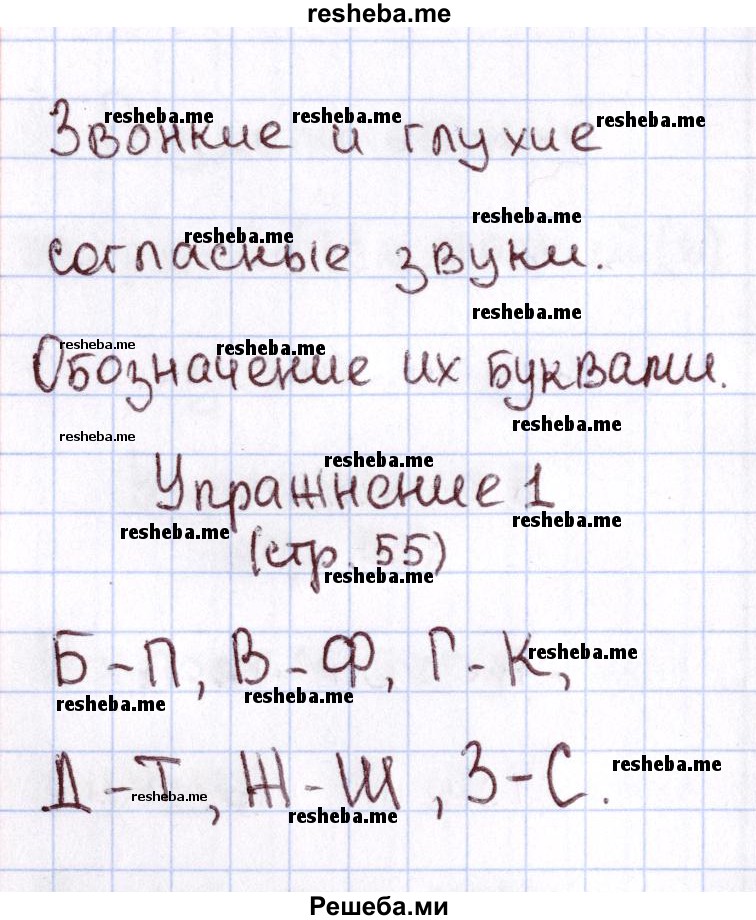 resheba.me
Звонкие и глухие
resheba.me resheba.me resheba.me
resheba.me
согласные звуки.
resheba.me
resheba.me
Обозначение их буквами.
resheba.me resheba.me
resheba.me
resheba.me
Упражнение 1
resheba.me
resheba.me
resheba.me
(стр. 55)
resheba.me
Б-П, В-Ф, Г-К,
resheba.me
resheba.me resheba.me
Д-Т, Ж-Ш, З-С.
resheba.me
resheba.me
resheba.me
Решеба.ми